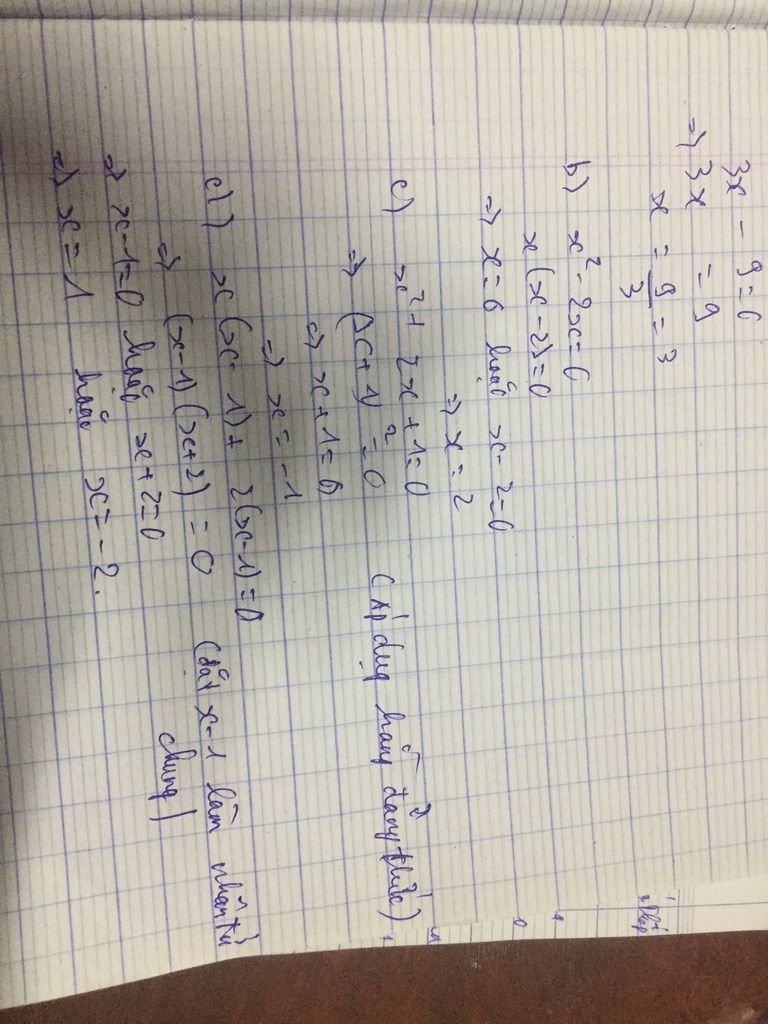 3x - 9 = 0
=> 3x = 9
x = 9/3 = 3
b) x² - 2x = 0
x(x - 2) = 0
=> x = 0 hoặc x - 2 = 0
=> x = 2
c) x² + 2x + 1 = 0
=> (x + 1)² = 0 (Áp dụng hằng đẳng thức)
=> x + 1 = 0
=> x = -1
d) x(x - 1) + 2(x - 1) = 0
=> (x - 1)(x + 2) = 0 (đặt x - 1 làm nhân tử
chung)
=> x - 1 = 0 hoặc x + 2 = 0
=> x = 1 hoặc x = -2.